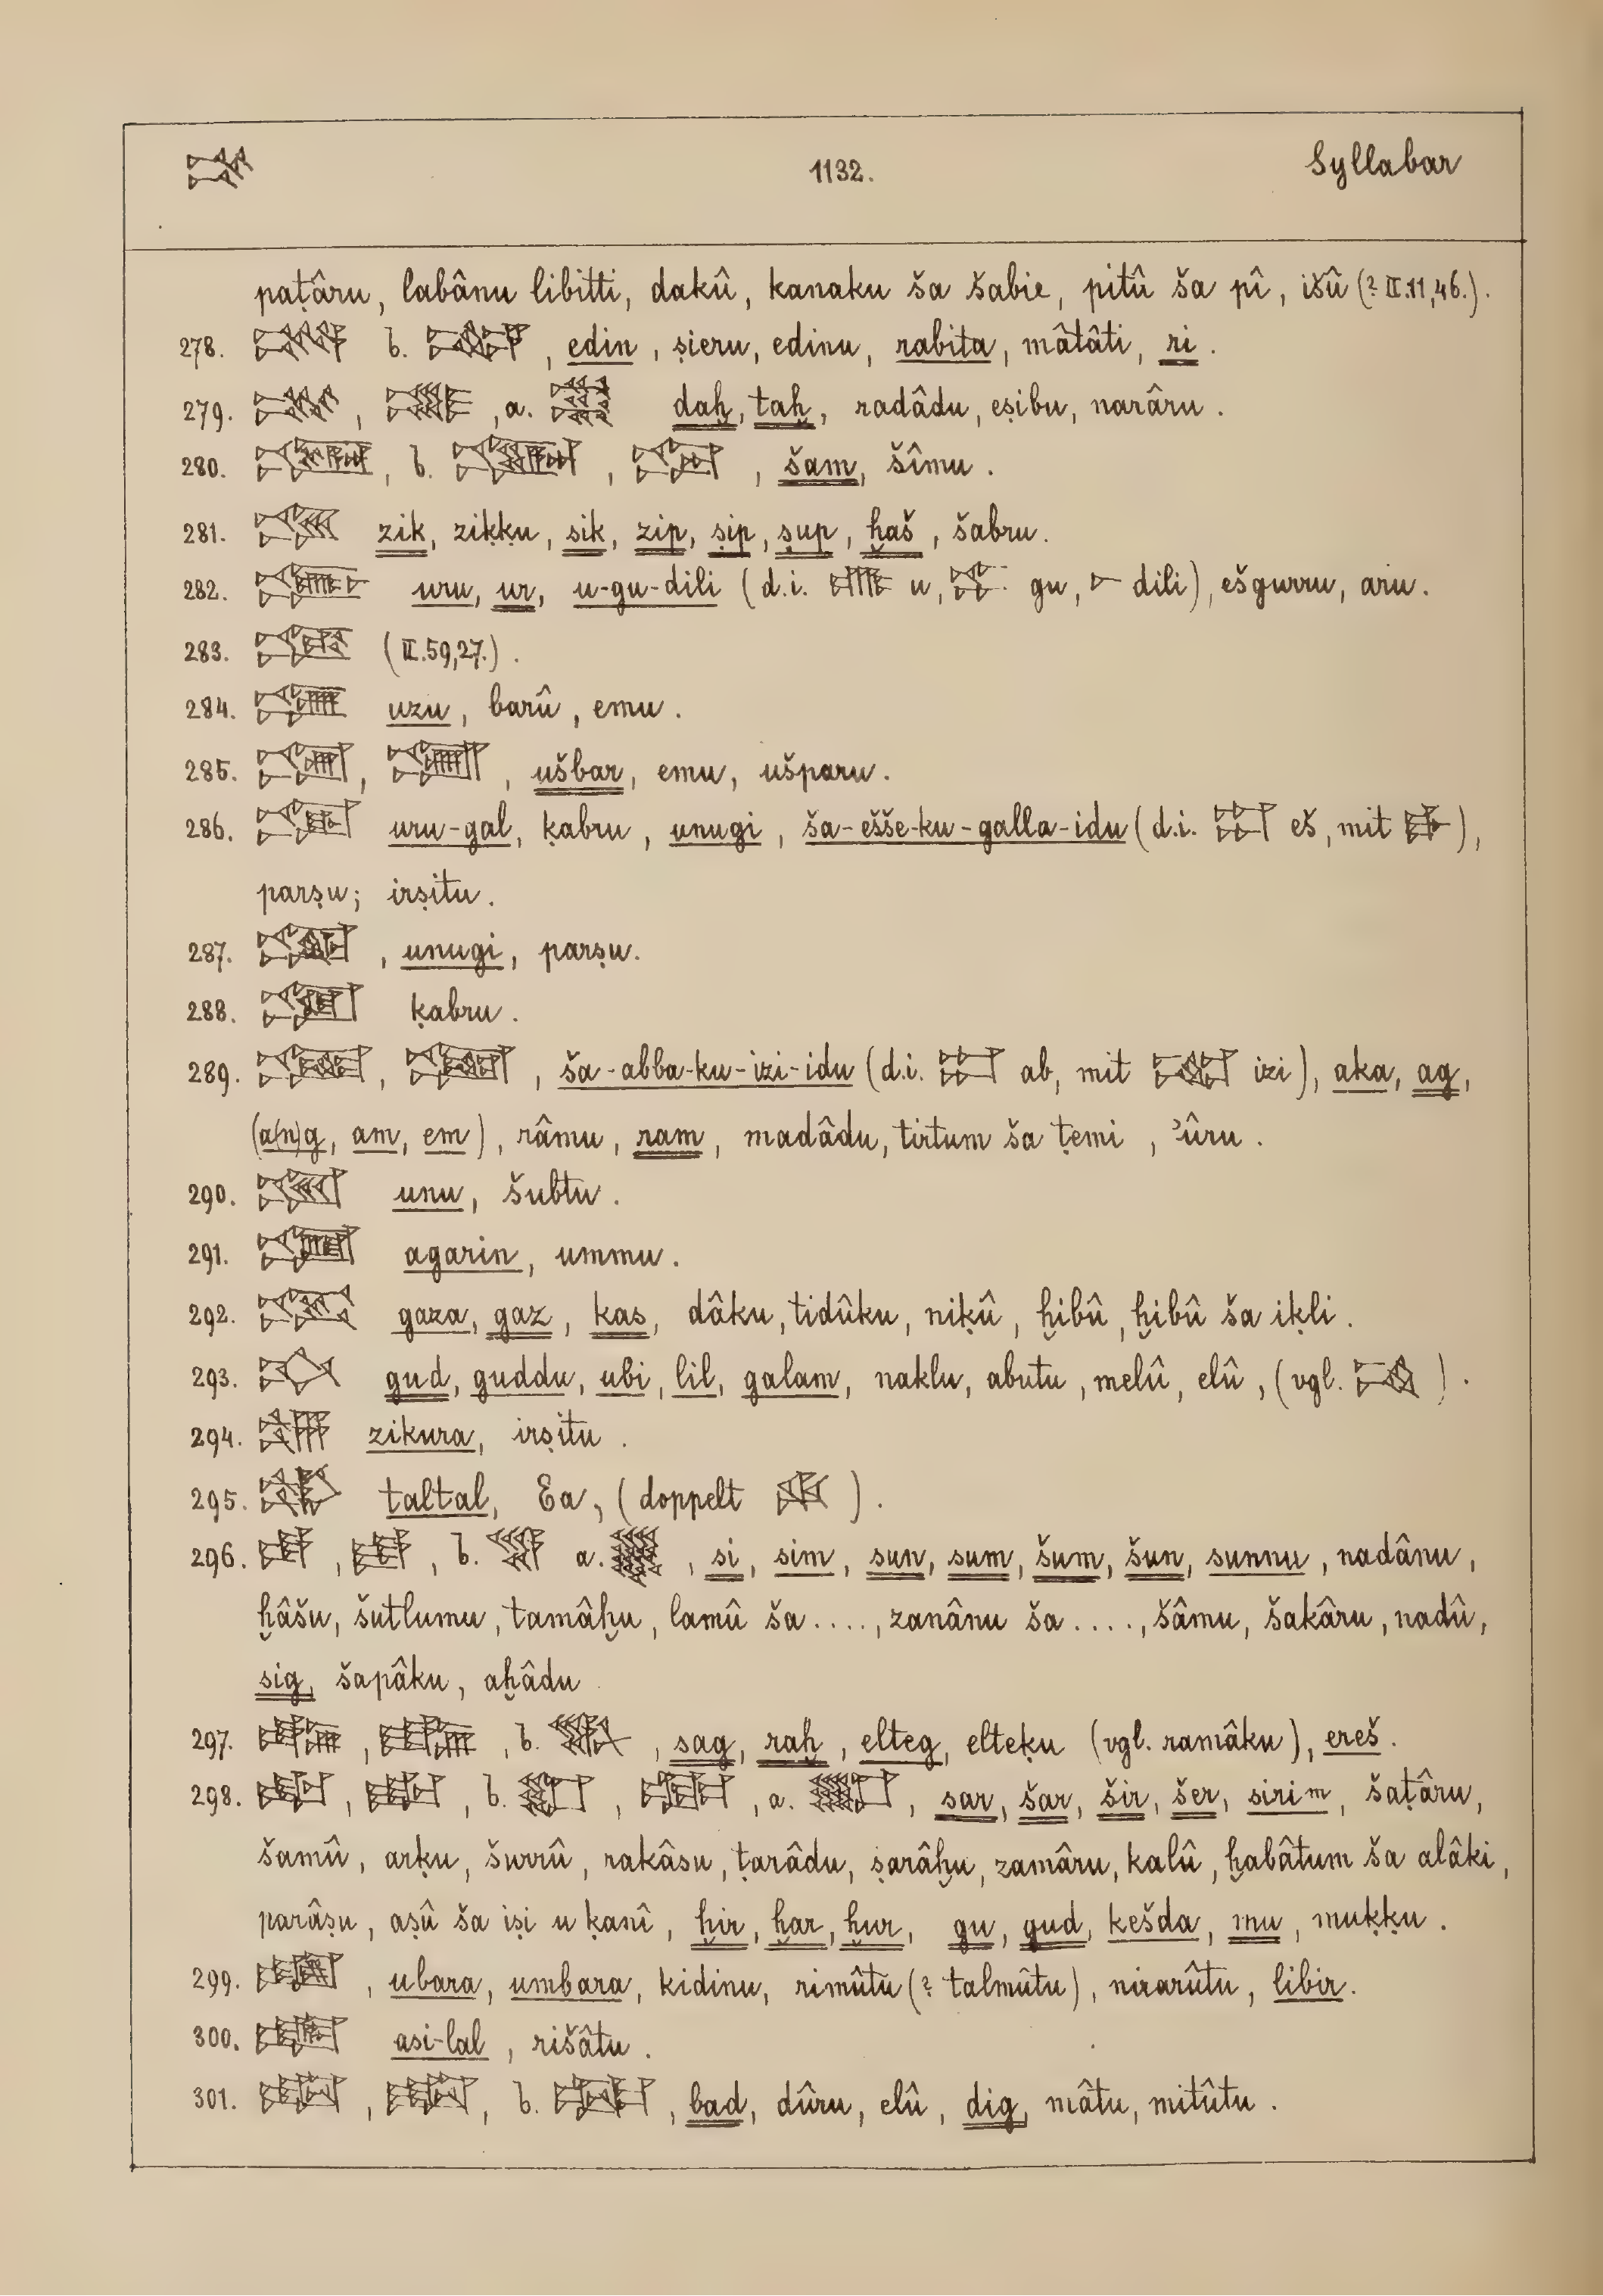 1132. Syllabar
paṭâru, labânu libitti, dakû, kanaku ša šabie, pitû ša pî, išû (? II.11,46.).
278. b. , edin, ṣieru, edinu, rabita, mâtâti, ri.
279. , , a. daḫ, taḫ, radâdu, eṣibu, narâru.
280. , b. , , šam, šîmu.
281. zik, ziḳḳu, sik, zip, ṣip, ṣup, ḫaš, šabru.
282. uru, ur, u-gu-dili (d.i. u, gu, dili), ešgurru, aru.
283. (II.59,27.).
284. uzu, barû, emu.
285. , , ušbar, emu, ušparu.
286. uru-gal, ḳabru, unugi, ša-ešše-ku-galla-idu (d.i. eš, mit ),
parṣu; irṣitu.
287. , unugi, parṣu.
288. ḳabru.
289. , , ša-abba-ku-izi-idu (d.i. ab, mit izi), aka, ag,
(a(n)g, am, em), râmu, ram, madâdu, tirtum ša ṭemi, ʾûru.
290. unu, šubtu.
291. agarin, ummu.
292. gaza, gaz, kas, dâku, tidûku, niḳû, ḫibû, ḫibû ša iḳli.
293. gud, guddu, ubi, lil, galam, naklu, abutu, melû, elû, (vgl. ).
294. zikura, irṣitu.
295. taltal, Ea, (doppelt ).
296. , , b. a. , si, sim, sun, sum, šum, šun, sunnu, nadânu,
ḫâšu, šutlumu, tamâḫu, lamû ša ...., zanânu ša ...., šâmu, šakâru, nadû,
sig, šapâku, aḫâdu
297. , , b. , sag, raḫ, elteg, elteḳu (vgl. ramâku), ereš.
298. , , b. , , a. , sar, šar, šir, šer, sirim, šaṭâru,
šamû, arḳu, šurrû, rakâsu, ṭarâdu, ṣarâḫu, zamâru, kalû, ḫabâtum ša alâki,
parâṣu, aṣû ša iṣi u ḳanî, ḫir, ḫar, ḫur, gu, gud, kešda, mu, muḳḳu.
299. , ubara, umbara, kidinu, rimûtu (? talmûtu), nirarûtu, libir.
300. asi-lal, rišâtu.
301. , , b. , bad, dûru, elû, dig, mâtu, mitûtu.